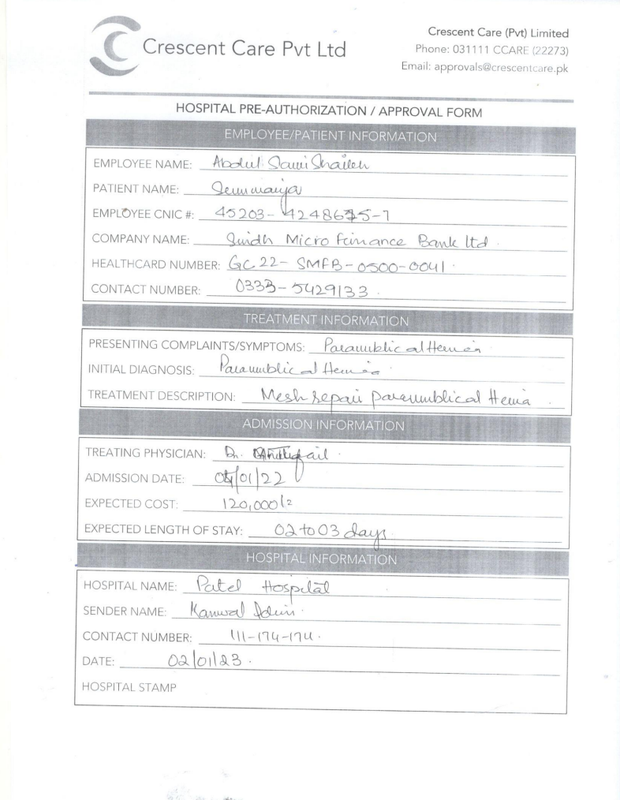 Crescent Care Pvt Ltd
Crescent Care (Pvt) Limited
Phone: 031111 CCARE (22273)
Email: approvals@crescentcare.pk
HOSPITAL PRE-AUTHORIZATION / APPROVAL FORM
EMPLOYEE/PATIENT INFORMATION
EMPLOYEE NAME: Abdul Sami Shaikh
PATIENT NAME:
EMPLOYEE CNIC #: 45203-
COMPANY NAME: Sindh Micro Finance Bank ltd.
HEALTHCARD NUMBER: GC22-SMFB-0500-0041.
CONTACT NUMBER: 0333-5429133.
TREATMENT INFORMATION
PRESENTING COMPLAINTS/SYMPTOMS: Paraumblical Hernia
INITIAL DIAGNOSIS: Paraumblical Hernia
TREATMENT DESCRIPTION: Mesh repair paraumblical Hernia.
ADMISSION INFORMATION
TREATING PHYSICIAN: Dr.
ADMISSION DATE: /01/22
EXPECTED COST: 120,000/=
EXPECTED LENGTH OF STAY: 02 to 03 days.
HOSPITAL INFORMATION
HOSPITAL NAME: Patel Hospital
SENDER NAME: Kanwal
CONTACT NUMBER: 111-174-174.
DATE: 02/01/23.
HOSPITAL STAMP